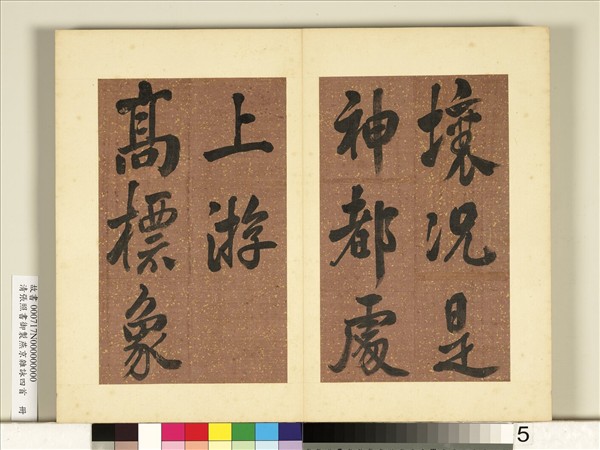 壤况是
神都處
上游
高標象
故書000717N000000000
清張照書御製燕京雜詠四首 冊
5